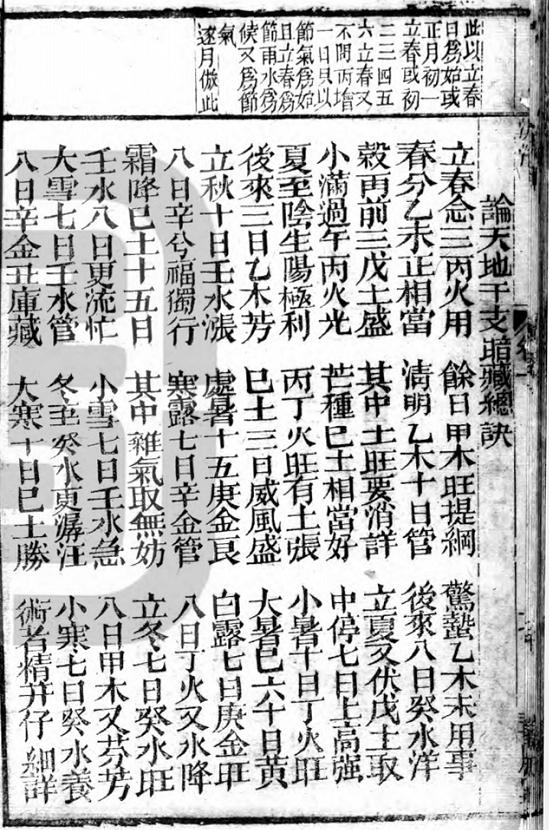 此以立春
日爲始或
正月初一
立春或初
二三四五
六立春又
不問丙增
一日只以
節氣爲始
且立春爲
節雨水爲
候又爲節
氣
逐月倣此
論天地干支暗藏總訣
立春念三丙火用 餘日甲木旺提綱 驚蟄乙木未用事
春分乙未正相當 清明乙木十日管 後來八日癸水洋
穀雨前三戊土盛 其中土旺要消詳 立夏又伏戊土取
小滿過午丙火光 芒種巳土相當好 中停七日上高強
夏至陰生陽極利 丙丁火旺有土張 小暑十日丁火旺
後來三日乙木芳 巳土三日威風盛 大暑巳六十日黃
立秋十日壬水漲 處暑十五庚金良 白露七日庚金旺
八日辛兮福獨行 寒露七日辛金管 八日丁火又水降
霜降巳土十五日 其中雜氣取無妨 立冬七日癸水旺
壬水八日更流忙 小雪七日壬水急 八日甲木又芬芳
大雪七日壬水管 冬至癸水更潺汪 小寒七日癸水養
八日辛金丑庫藏 大寒十日巳土勝 術者精并仔細詳